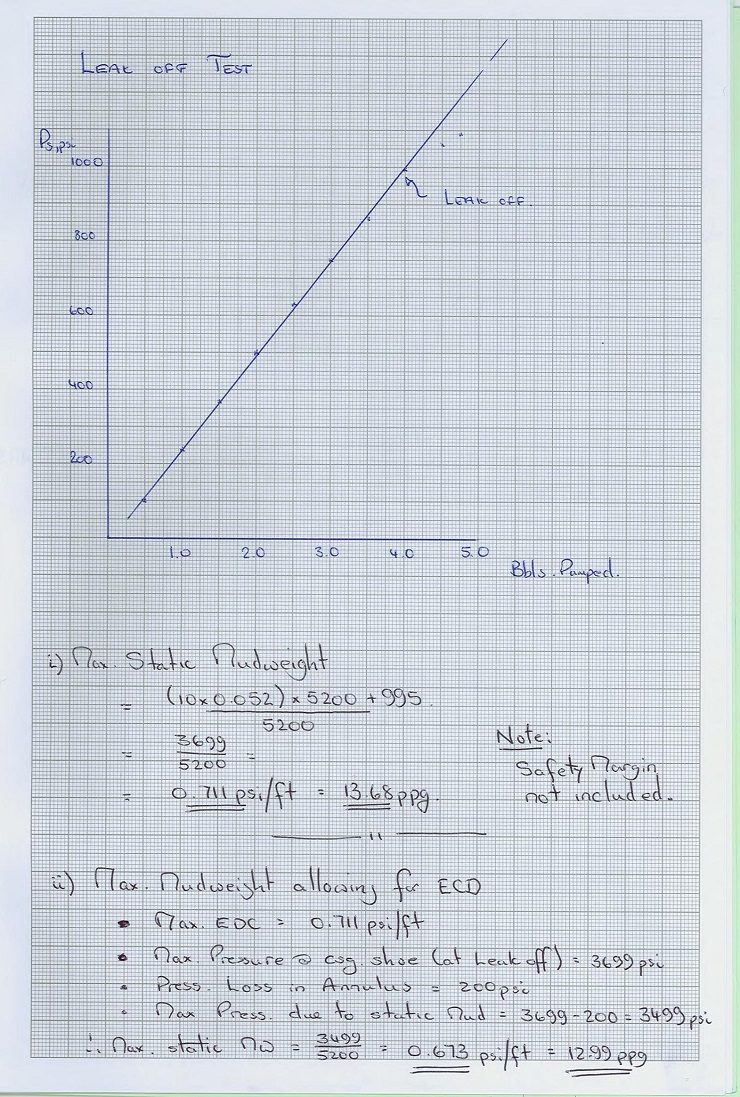 LEAK OFF TEST
Ps, psi
1000
800
600
400
200
LEAK OFF.
1.0 2.0 3.0 4.0 5.0
Bbls. Pumped.
i) Max. Static Mudweight
= (10 x 0.052) x 5200 + 995.
5200
= 3699 =
5200
= 0.711 psi/ft = 13.68 ppg.
Note:
Safety Margin
not included.
ii) Max. Mudweight allowing for ECD
• Max. EDC = 0.711 psi/ft
• Max. Pressure @ csg. shoe (at Leak off) = 3699 psi
• Press. Loss in Annulus = 200 psi
• Max Press. due to static Mud = 3699 - 200 = 3499 psi
∴ Max. static MW = 3499 = 0.673 psi/ft = 12.99 ppg
5200